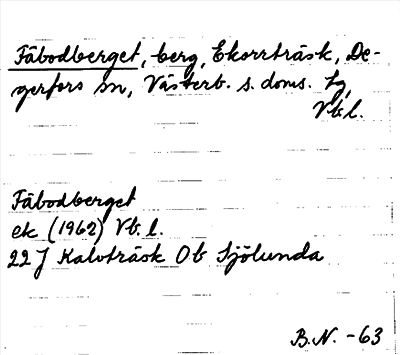 Fäbodberget, berg, Ekorrträsk, De-
gerfors sn, Västerb. s. doms. tg,
Vb l.
Fäbodberget
ek (1962) Vb. l.
22 J Kalvträsk Ob Sjölunda
B.N. -63